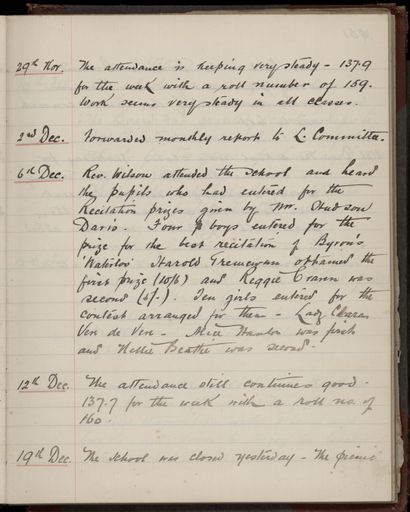 29th Nov. The attendance is keeping very steady - 137.9
for the week with a roll number of 159.
Work seems very steady in all classes.
2nd Dec. Forwarded monthly report to L. Committee.
6th Dec. Rev. Wilson attended the school and heard
the pupils who had entered for the
Recitation prizes given by Mr. Hudson
Davis. Four boys entered for the
prize for the best recitation of Byron's
Harold obtained the
first prize (10/6) and Reggie was
second (5/-). Ten girls entered for the
contest arranged for them - Lady Clara
Vere de Vere - was first
and Nellie Beattie was second -
12th Dec. The attendance still continues good -
137.7 for the week with a roll no. of
160.
19th Dec. The school was closed yesterday - The picnic